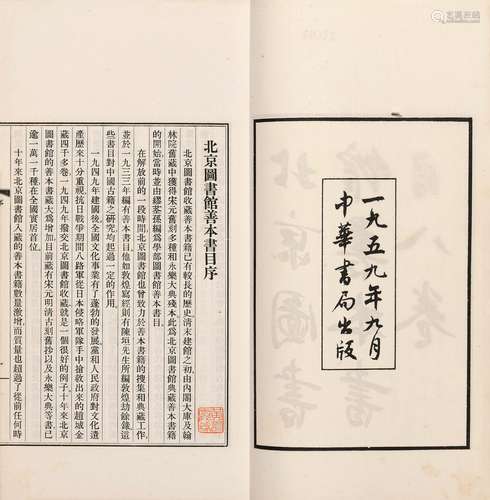 一九五九年九月
中華書局出版
北京圖書館善本書目序
北京圖書館收藏善本書籍已有較長的歷史清末建館之初由內閣大庫及翰
林院舊藏中獲得宋元舊刻多種和永樂大典殘本此為北京圖書館典藏善本書籍
的開始當時並由繆荃孫編爲學部圖書館善本書目
在解放前的一段時間北京圖書館也曾致力於善本書籍的搜集和典藏工作
並於一九三三年編有善本書目他如敦煌寫經則有陳垣先生所編敦煌劫餘錄這
些書目對中國古籍之研究均起過一定的作用
一九四九年建國後全國文化事業有了蓬勃的發展黨和人民政府對文化遺
產歷來十分重視抗日戰爭期間八路軍從日本侵略軍隊手中搶救出來的趙城金
藏四千多卷一九四九年撥交北京圖書館收藏就是一個很好的例子十年來北京
圖書館的善本書藏大爲增加目前藏有宋元明清古刻舊抄以及永樂大典等書已
逾一萬一千種在全國實居首位
十年來北京圖書館入藏的善本書籍數量激增而質量也超過了從前任何時